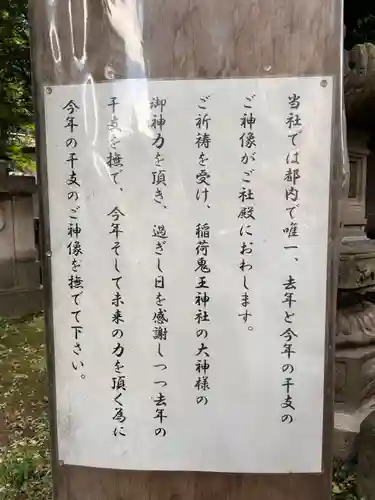 当社では都内で唯一、去年と今年の干支の
ご神像がご社殿におわします。
ご祈祷を受け、稲荷鬼王神社の大神様の
御神力を頂き、過ぎし日を感謝しつつ去年の
干支を撫で、今年そして未来の力を頂く為に
今年の干支のご神像を撫でて下さい。